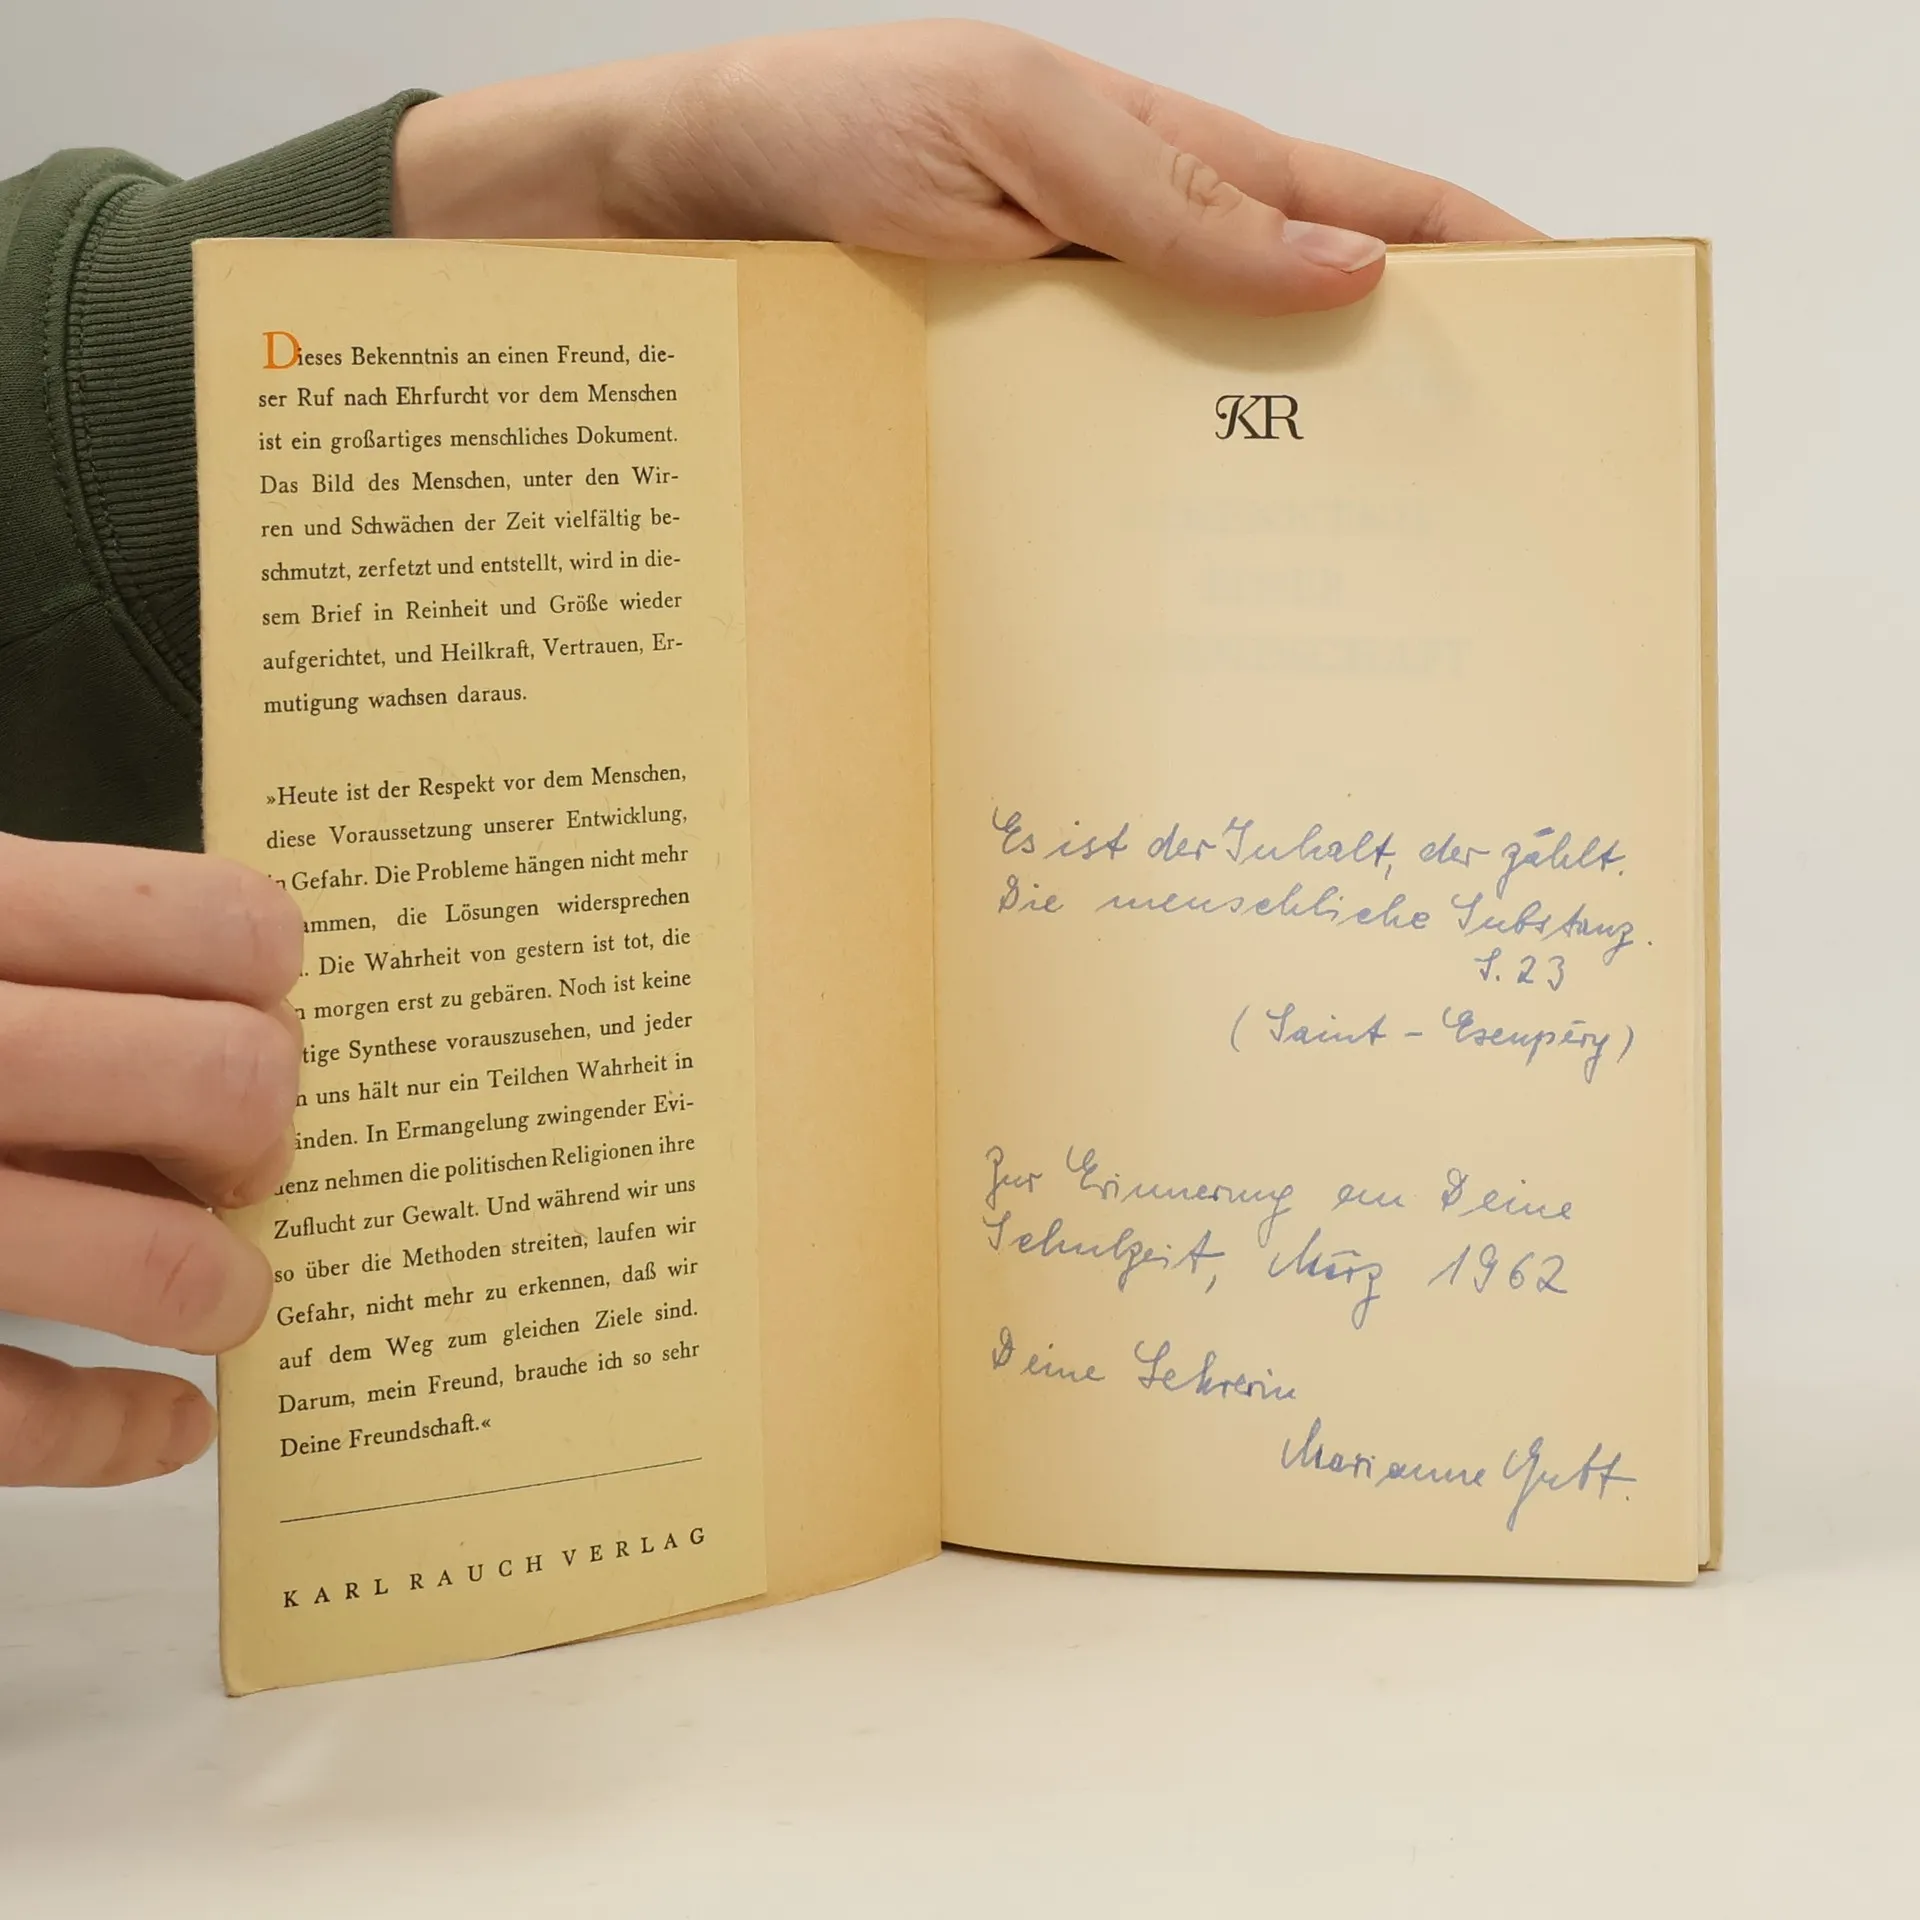 Dieses Bekenntnis an einen Freund, die-
ser Ruf nach Ehrfurcht vor dem Menschen
ist ein großartiges menschliches Dokument.
Das Bild des Menschen, unter den Wir-
ren und Schwächen der Zeit vielfältig be-
schmutzt, zerfetzt und entstellt, wird in die-
sem Brief in Reinheit und Größe wieder
aufgerichtet, und Heilkraft, Vertrauen, Er-
mutigung wachsen daraus.
»Heute ist der Respekt vor dem Menschen,
diese Voraussetzung unserer Entwicklung,
in Gefahr. Die Probleme hängen nicht mehr
ammen, die Lösungen widersprechen
. Die Wahrheit von gestern ist tot, die
n morgen erst zu gebären. Noch ist keine
tige Synthese vorauszusehen, und jeder
n uns hält nur ein Teilchen Wahrheit in
änden. In Ermangelung zwingender Evi-
denz nehmen die politischen Religionen ihre
Zuflucht zur Gewalt. Und während wir uns
so über die Methoden streiten, laufen wir
Gefahr, nicht mehr zu erkennen, daß wir
auf dem Weg zum gleichen Ziele sind.
Darum, mein Freund, brauche ich so sehr
Deine Freundschaft.«
KARL RAUCH VERLAG
KR
Es ist der Inhalt, der zählt.
Die menschliche Substanz.
S. 23
(Saint-Exenpéry)
Zur Erinnerung an Deine
Schulzeit, März 1962
Deine Lehrerin
Marianne Gutt.